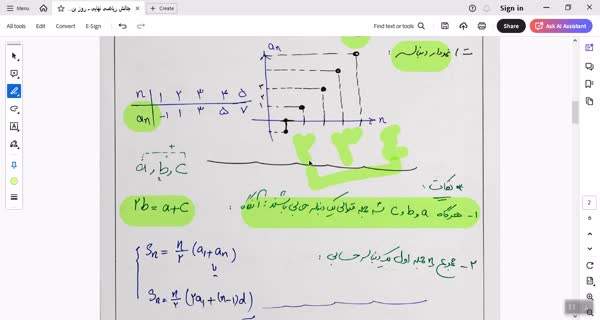 Menu
چالش ریاضت نهایی - روز ین...
Create
Sign in
All tools Edit Convert E-Sign
Find text or tools
Share
Ask AI Assistant
۱) نمودار دنباله:
n | ۱ ۲ ۳ ۴ ۵
aₙ | -۱ ۱ ۳ ۵ ۷
aₙ
۳
۲
۱
n
۲ ۳ ۴
+
a, b, c
* نکات:
۱- هرگاه a و b و c سه جمله متوالی یک دنباله حسابی باشند؛ آنگاه:
۲b = a+c
۲- مجموع n جمله اول یک دنباله حسابی:
Sₙ = n/۲ (a₁+aₙ)
یا
Sₙ = n/۲ (۲a₁+(n-۱)d)
2